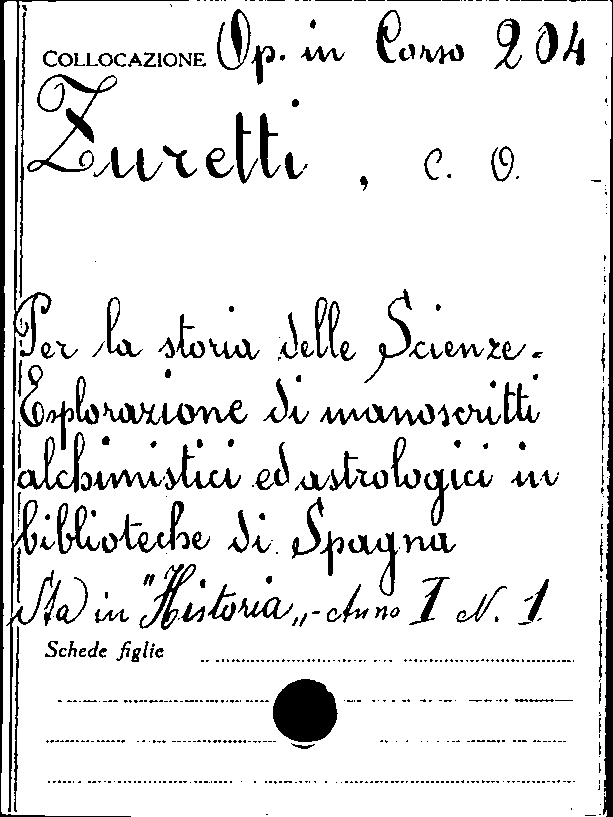 COLLOCAZIONE Op. in Corso 204
Zuretti, C. O.
Per la storia delle Scienze.
Esplorazione di manoscritti
alchimistici ed astrologici in
biblioteche di Spagna
Sta in "Historia„ - Anno I N. 1
Schede figlie